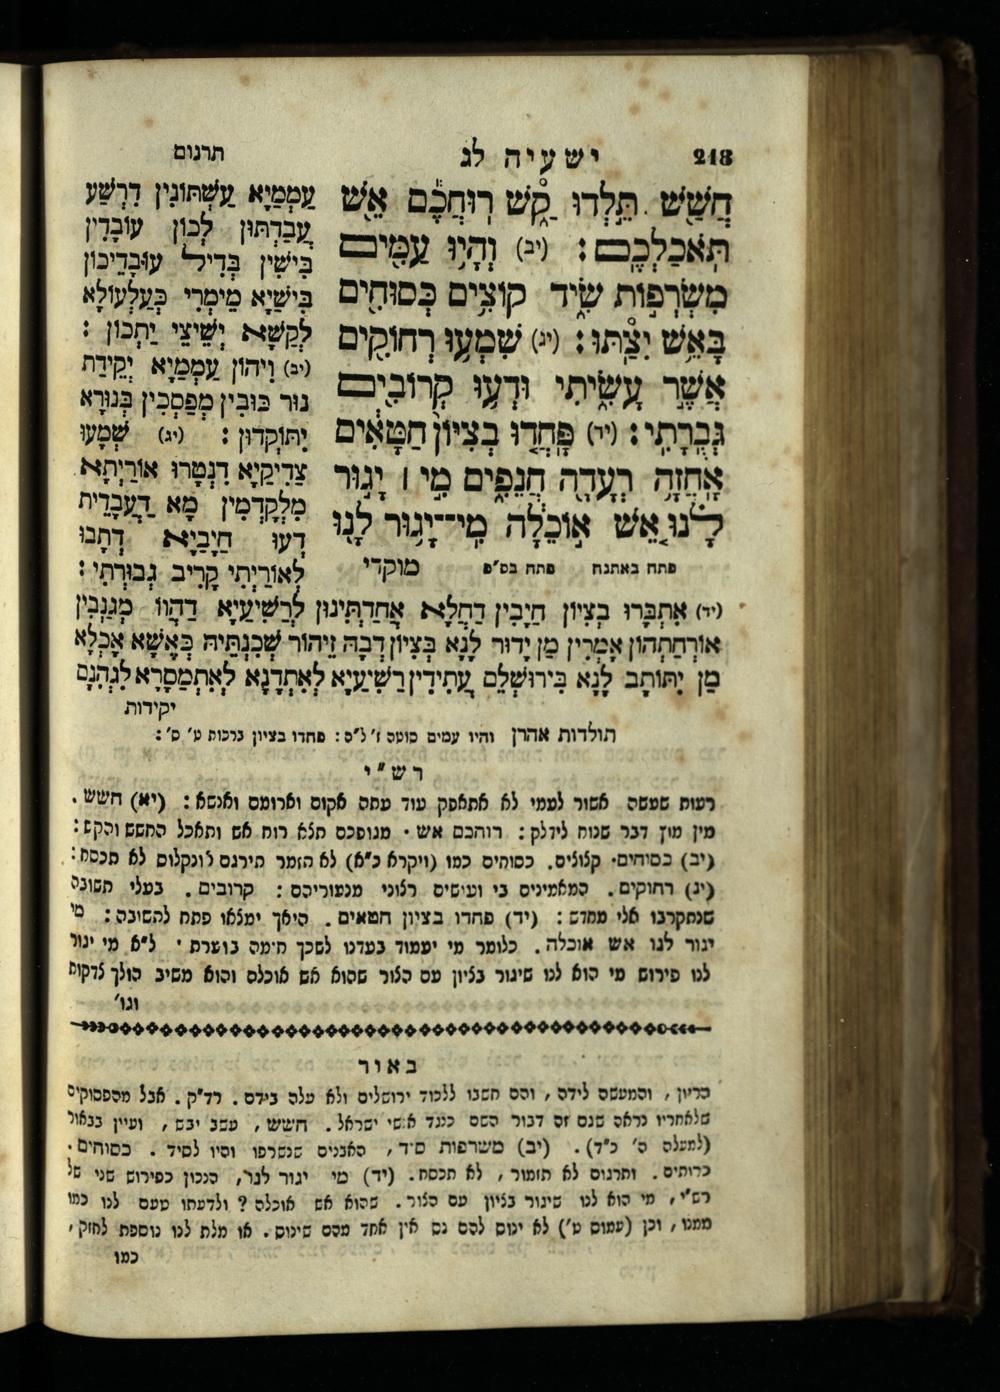 218 ישעיה לג תרגום
חֲשַׁשׁ תֵּלְדוּ קַשׁ רוּחֲכֶם אֵשׁ
תֹּאכַלְכֶם : (יב) וְהָיוּ עַמִּים
מִשְׂרְפוֹת שִׂיד קוֹצִים כְּסוּחִים
בָּאֵשׁ יִצַּתּוּ : (יג) שִׁמְעוּ רְחוֹקִים
אֲשֶׁר עָשִׂיתִי וּדְעוּ קְרוֹבִים
גְּבֻרָתִי : (יד) פָּחֲדוּ בְצִיּוֹן חַטָּאִים
אָחֲזָה רְעָדָה חֲנֵפִים מִי ׀ יָגוּר
לָנוּ אֵשׁ אוֹכֵלָה מִי־יָגוּר לָנוּ
פתח באתנח פתח בס״פ מוקדי
עַמְמַיָא עַשְׁתּוֹנִין דִרְשַׁע
עֲבַדְתּוּן לְכוֹן עוֹבָדִין
בִּישִׁין בְּדִיל עוֹבָדֵיכוֹן
בִּישַׁיָא מֵימְרִי כְּעַלְעוֹלָא
לְקַשָׁא יְשֵׁיצֵי יַתְכוֹן :
(יב) וִיהוֹן עַמְמַיָא יְקִידַת
נוּר כּוּבִין מְפַסְכִין בְּנוּרָא
יִתּוֹקְדוּן : (יג) שְׁמָעוּ
צַדִיקַיָא דִנְטָרוּ אוֹרַיְתָא
מִלְקָדְמִין מָא דַעֲבָדִית
דְעוּ חַיָבַיָא דְתָבוּ
לְאוֹרַיְתִי קָרִיב גְבוּרְתִּי :
(יד) אִתְּבָרוּ בְצִיוֹן חַיָבִין דַחֲלָא אֲחַדְתִּינוּן לְרַשִׁיעַיָא דַהֲווֹ מְגַנְבִין
אוֹרְחָתְהוֹן אָמְרִין מַן יָדוּר לָנָא בְּצִיוֹן דְבָהּ זֵיהוֹר שְׁכִנְתֵּיהּ כְּאֶשָׁא אָכְלָא
מַן יִתּוֹתָב לָנָא בִּירוּשְׁלֵם עֲתִידִין רַשִׁיעַיָא לְאִתְדָנָא לְאִתְמַסָרָא לְגֵהִנָם
יקידות
תולדות אהרן והיו עמים סוטה ז׳ ל״ה : פחדו בציון ברכות ט׳ ס׳ :
רש״י
רעות שעשה אשור לעמי לא אתאפק עוד עתה אקום וארומם ואנשא : (יא) חשש .
מין מוץ דבר שנוח לידלק : רוחכם אש . מגופכם תצא רוח אש ותאכל החשש והקש :
(יב) כסוחים . קצוצים . כסוחים כמו (ויקרא כ״א) לא תזמר תירגם אונקלוס לא תכסח :
(יג) רחוקים . המאמינים בי ועושים רצוני מנעוריהם : קרובים . בעלי תשובה
שנתקרבו אלי מחדש : (יד) פחדו בציון חטאים . היאך ימצאו פתח לתשובה : מי
יגור לנו אש אוכלה . כלומר מי יעמוד בעדנו לשכך חימה בוערת . ל״א מי יגור
לנו פירוש מי הוא לנו שיגור בציון עם הצור שהוא אש אוכלה והוא משיב הולך צדקות
וגו׳
באור
הריון , והמעשה לידה , והם חשבו ללכוד ירושלים ולא עלה בידם . רד״ק . אבל מהפסוקים
שלאחריו נראה שגם זה דבור השם כנגד אנשי ישראל . חשש , עשב יבש , ועיין בבאור
(למעלה ה׳ כ״ד) . (יב) משרפות סיד , האבנים שנשרפו והיו לסיד . כסוחים .
כרותים . ותרגום לא תזמור , לא תכסח . (יד) מי יגור לנו , הנכון כפירוש שני של
רש״י , מי הוא לנו שיגור בציון עם הצור . שהוא אש אוכלה ? ולדעתו טעם לנו כמו
ממנו , וכן (עמוס ט׳) לא ינוס להם נס אין אחד מהם שינוס . או מלת לנו נוספת לחזק ,
כמו